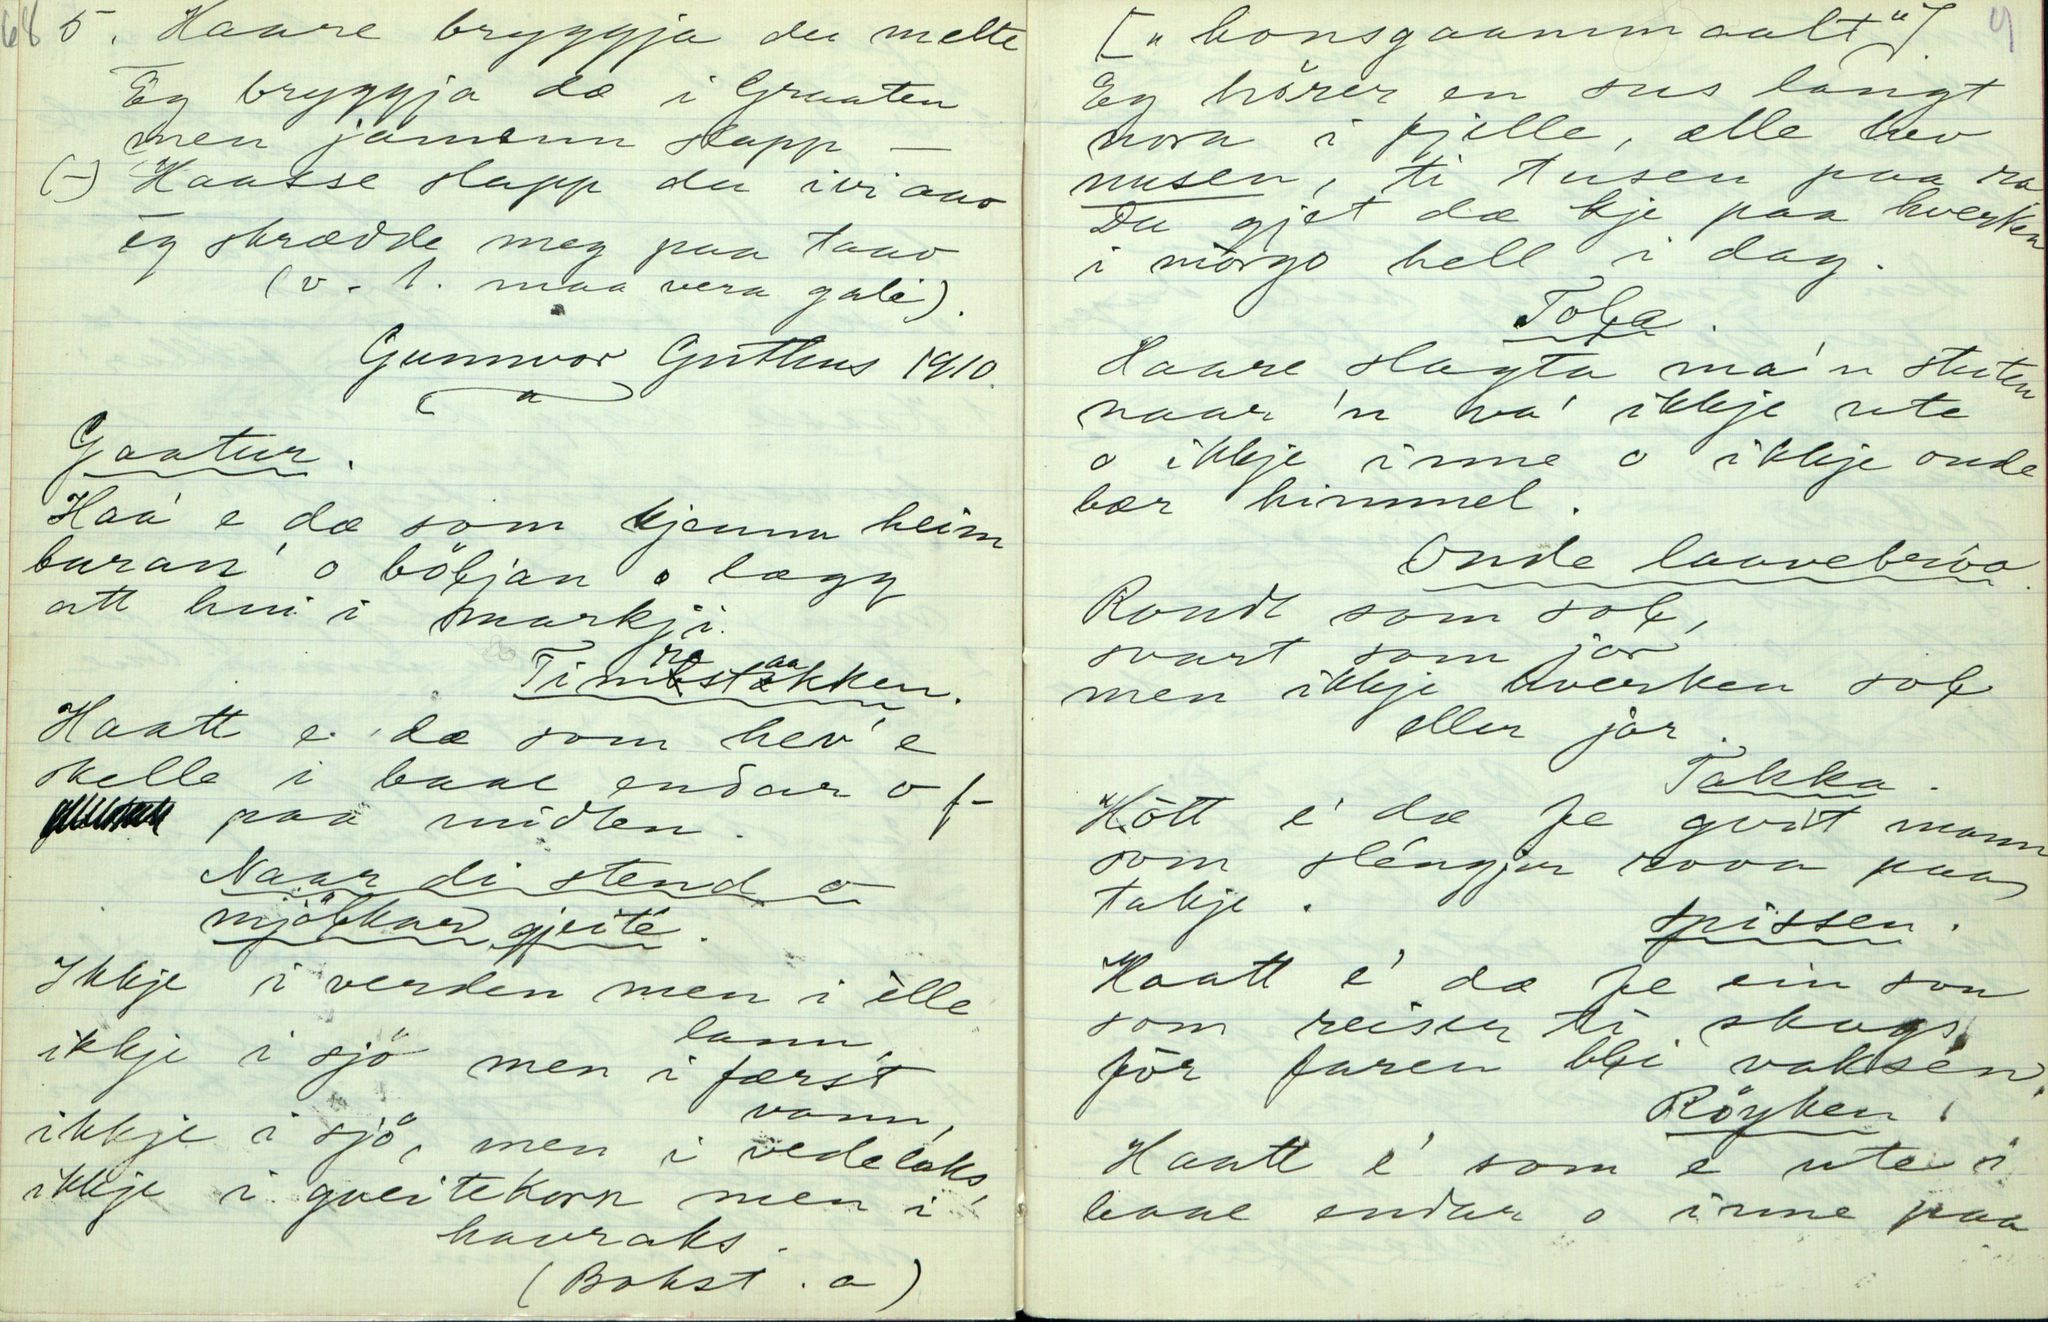 68
5. Haare bryggja du melte
Eg bryggja dæ i Graaten
men jamenn slapp —
(-) Haasse slapp du ivi aao
eg skrædde meg paa taao
(v. l. maa vera gale).
Gunnvor Guthus 1910.
a
Gaatur.
Haa' e dæ som kjemm heim
buran' o böljan o lægg
att hui i markji.
Timrestaakken.
Haatt e dæ som hev' e
skelle i baae endar o f-
paa midten.
Naar di stend o
mjölkar gjeite.
Ikkje i verden men i elle
lann,
ikkje i sjö men i færst
vann,
ikkje i sjö, men i vedelaks,
ikkje i gveitekorn men i
havraks.
(Bokst. a)
9
[„honsgaammaalt"]
Eg hörer en sus langt
nora i fjelle, alle hev
nusen, ti tusen paa ra
Du gjet dæ kje paa hverken
i mórgo hell i dag.
Tola.
Haare slagta má'n stuten
naar 'n va' ikkje ute
o ikkje inne o ikkje onde
bær himmel.
Onde laavebrúa.
Rondt som sol,
svart som jor
men ikkje hverken sol
eller jor.
Takka.
Hött e' dæ fe gvit mann
som slengjer rova paa
takje.
Spissen.
Haatt e' dæ fe ein son
som reiser ti skogs
för faren bli vaksen.
Röyken.
Haatt e' som e ute i
baae endar o inne paa